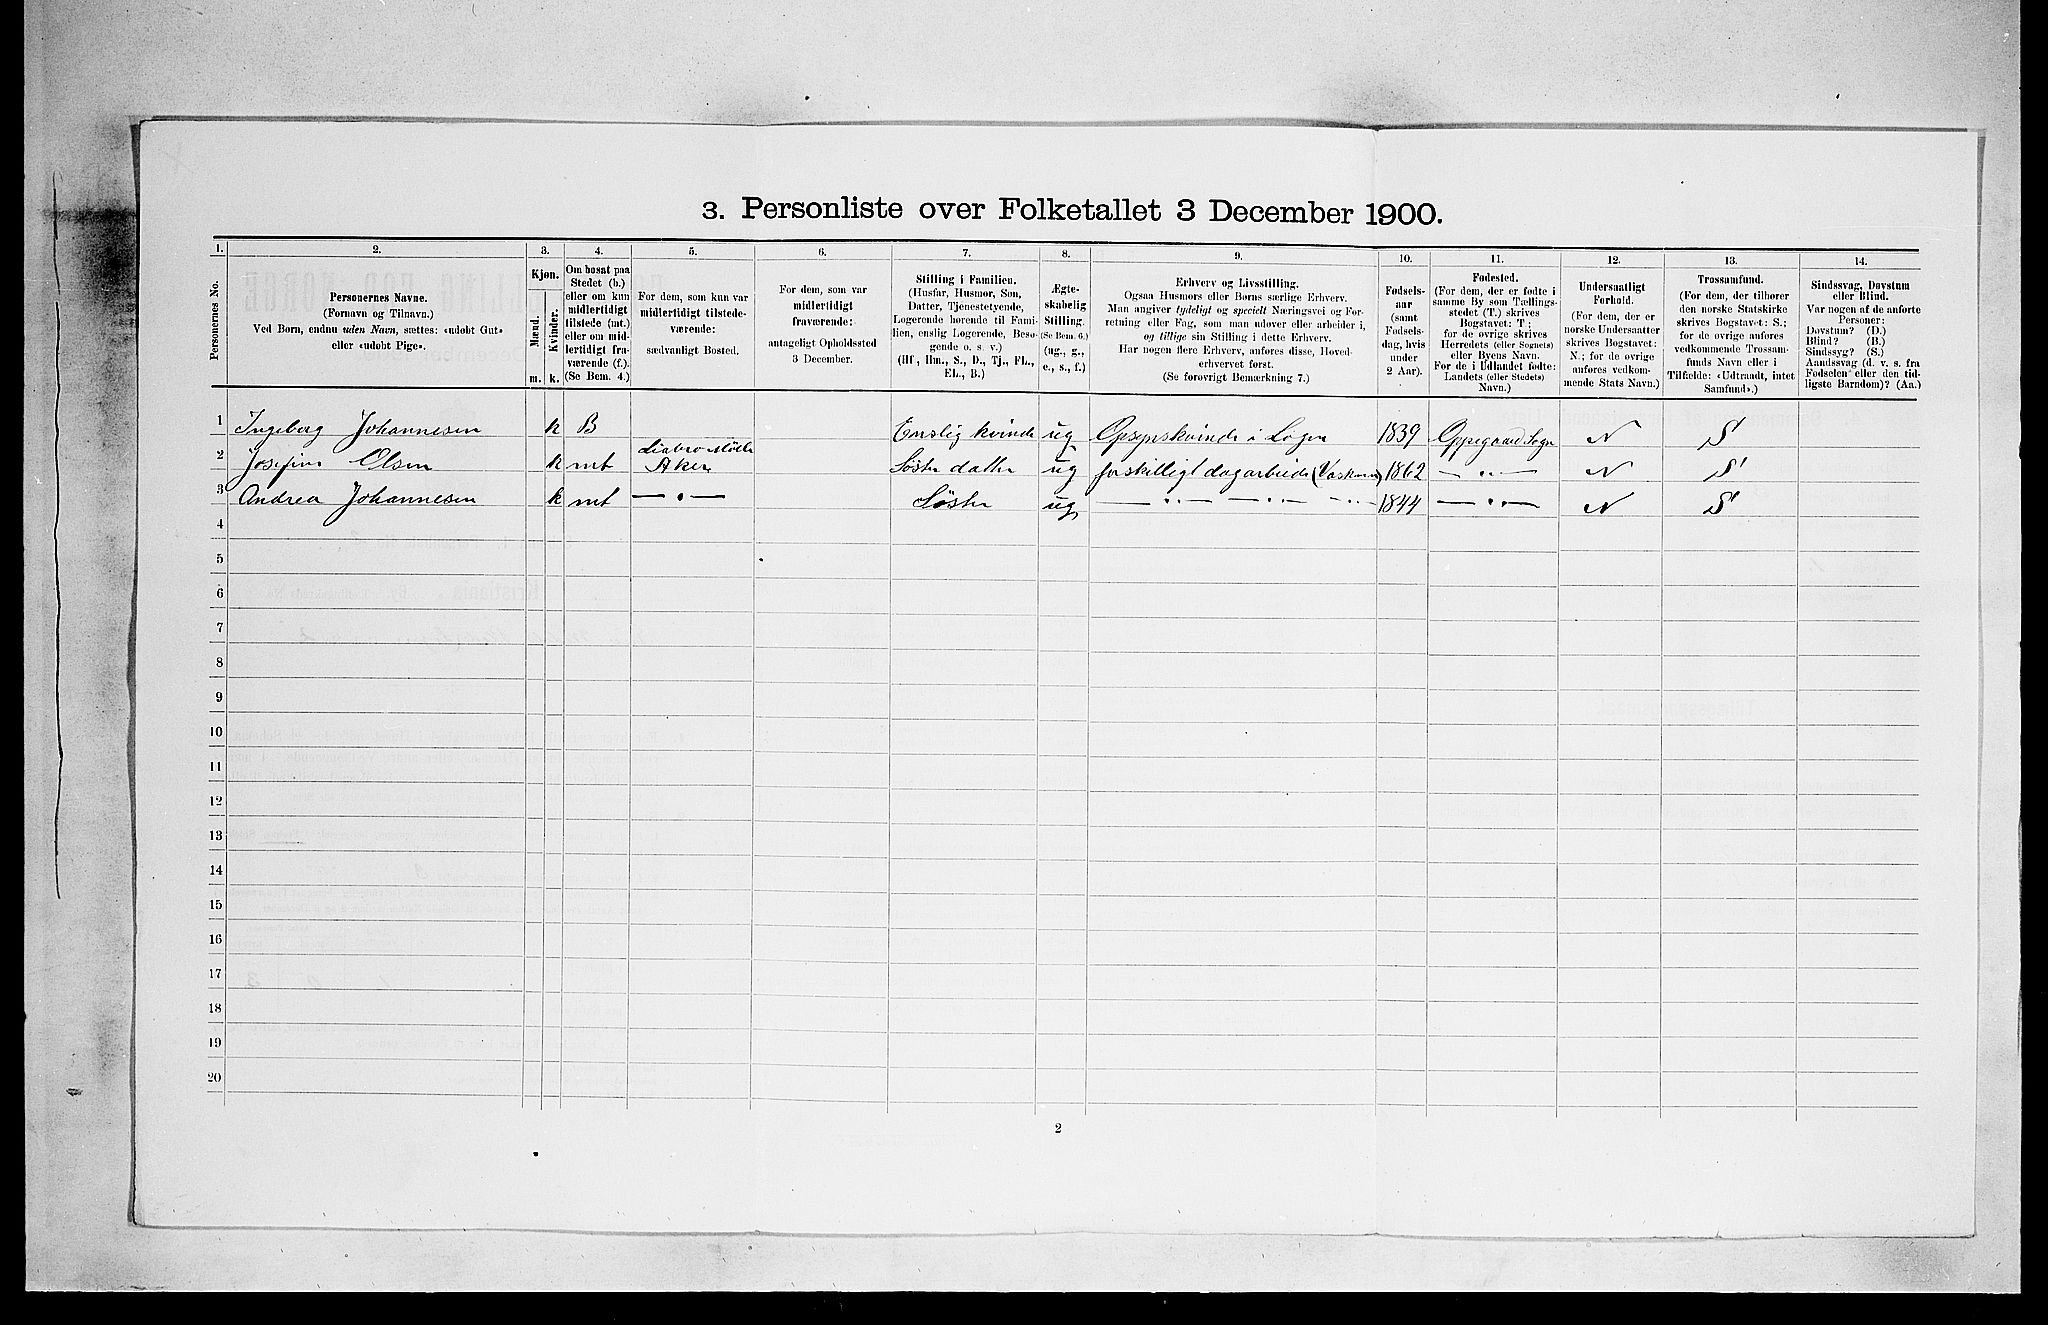 3. Personliste over Folketallet 3 December 1900.
1.
Personernes No.
2.
Personernes Navne.
(Fornavn og Tilnavn.)
Ved Børn, endnu uden Navn, sættes: «udøbt Gut»
eller «udøbt Pige».
3.
Kjøn.
Mænd.
Kvinder.
m. k.
4.
Om bosat paa
Stedet (b.)
eller om kun
midlertidigt
tilstede (mt.)
eller om mid-
lertidigt fra-
værende (f.).
(Se Bem. 4.)
5.
For dem, som kun var
midlertidigt tilstede-
værende:
sædvanligt Bosted.
6.
For dem, som var
midlertidigt
fraværende:
antageligt Opholdssted
3 December.
7.
Stilling i Familien.
(Husfar, Husmor, Søn,
Datter, Tjenestetyende,
Logerende hørende til Fami-
lien, enslig Logerende, Besø-
gende o. s. v.)
(Hf, Hm., S., D., Tj., FL.,
EL., B.)
8.
Ægte-
skabelig
Stilling.
(Se Bem. 6.)
(ug., g.,
e., s., f.)
9.
Erhverv og Livsstilling.
Ogsaa Husmors eller Børns særlige Erhverv.
Man angiver tydeligt og specielt Næringsvei og For-
retning eller Fag, som man udøver eller arbeider i,
og tillige sin Stilling i dette Erhverv.
Har nogen flere Erhverv, anføres disse, Hoved-
erhvervet først.
(Se forøvrigt Bemærkning 7.)
10.
Fødsels-
aar
(samt
Fødsels-
dag, hvis
under
2 Aar).
11.
Fødested.
(For dem, der er fødte i
samme By som Tællings-
stedet (T.) skrives
Bogstavet: T;
for de øvrige skrives
Herredets (eller Sognets)
eller Byens Navn.
For de i Udlandet fødte:
Landets (eller Stedets)
Navn.)
12.
Undersaatligt
Forhold.
(For dem, der er
norske Undersaatter
skrives Bogstavet:
N.; for de øvrige
anføres vedkom-
mende Stats Navn.)
13.
Trossamfund.
(For dem, der tilhører
den norske Statskirke
skrives Bogstavet: S.;
for de øvrige anføres
vedkommende Trossam-
funds Navn eller i
Tilfælde: «Udtraadt, intet
Samfund».)
14.
Sindssvag, Døvstum
eller Blind.
Var nogen af de anførte
Personer:
Døvstum? (D.)
Blind? (B.)
Sindssyg? (S.)
Aandssvag (d. v. s. fra
Fødselen eller den tid-
ligste Barndom)? (Aa.)
1 Ingeborg Johannesen k B Enslig kvinde ug Opsynskvinde i Logen 1839 Oppegaard Sogn N S
2 Josefine Olsen k mt Liabro Mølle Aker Søster datter ug forskilligt dagarbeide (Vaskerie) 1862 — " — N S
3 Andrea Johannesen k mt — " — Søster ug — " — " — " 1844 — " — N S
4
5
6
7
8
9
10
11
12
13
14
15
16
17
18
19
20
2